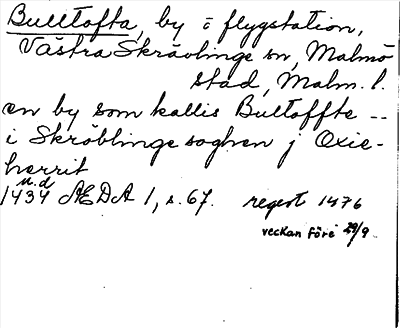 Bulltofta, by o flygstation,
Västra Skrävlinge sn, Malmö
stad, Malm. l.
en by som kallis Bultoffte --
i Skröblinge soghen j Oxie-
herrit
u.d
1434 ÆDA 1, s. 67. regest 1476
veckan före 29/9